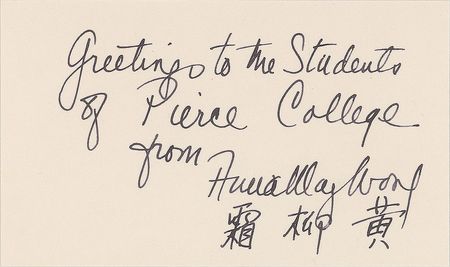 Greetings to the Students
of Pierce College
from
Anna May Wong
霜 柳 黃